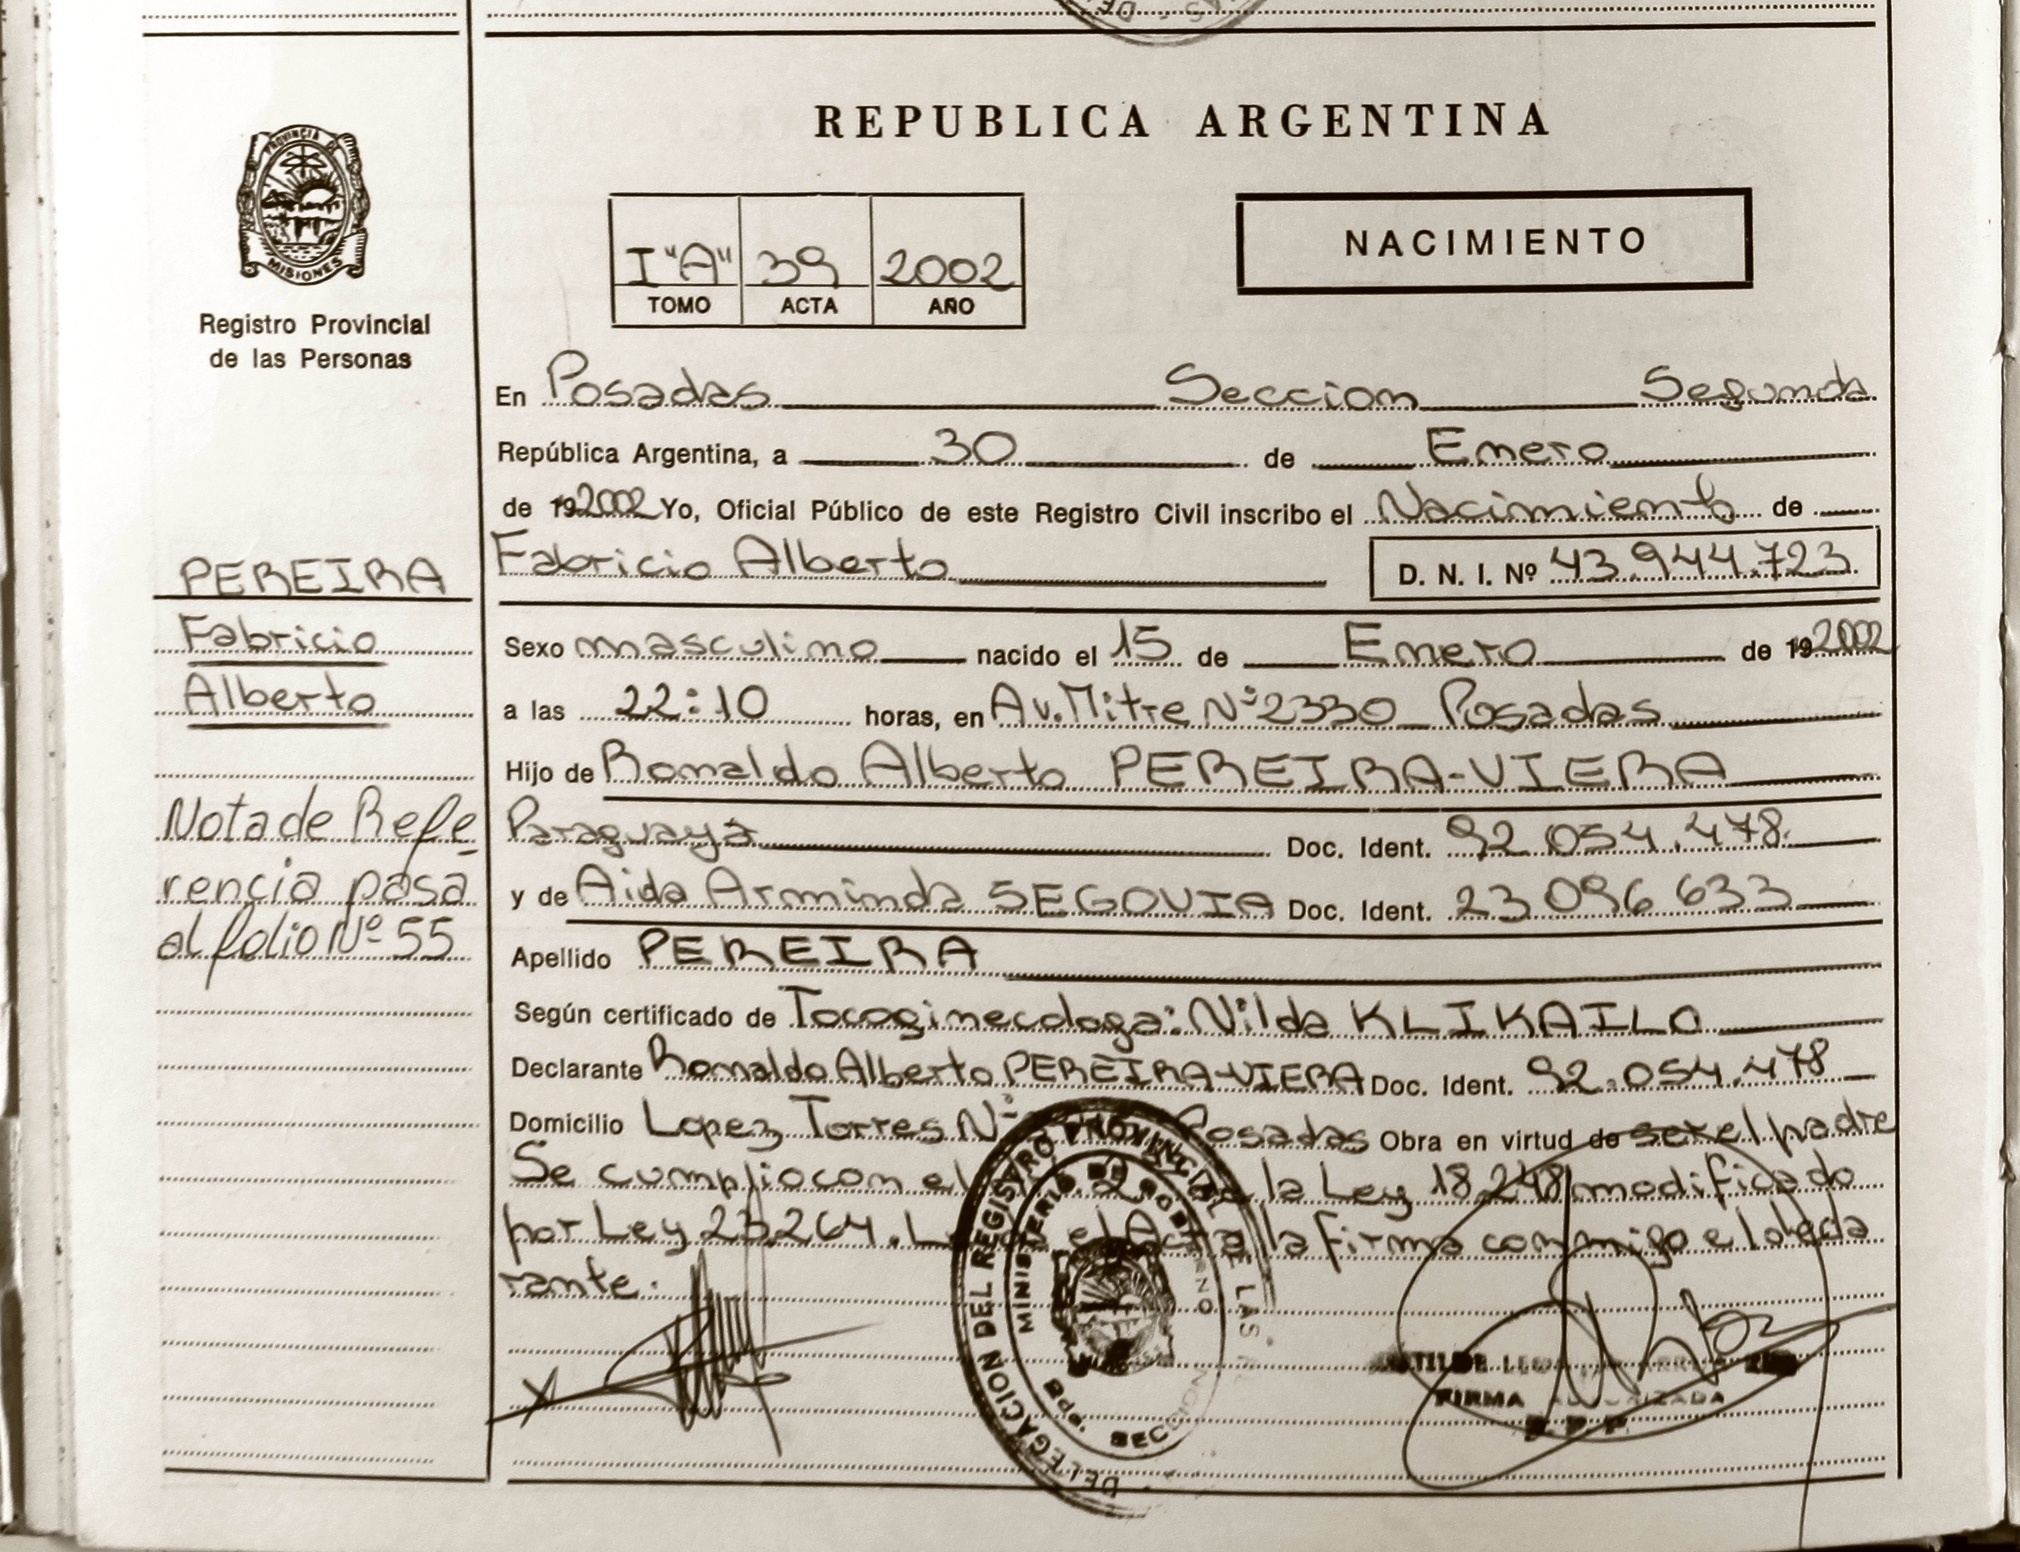 REPUBLICA ARGENTINA
PROVINCIA DE
MISIONES
Registro Provincial
de las Personas
I "A" 39 2002
TOMO ACTA AÑO
NACIMIENTO
En Posadas Seccion Segunda
República Argentina, a 30 de Enero
de 19 2002 Yo, Oficial Público de este Registro Civil inscribo el Nacimiento de
Fabricio Alberto D. N. I. Nº 43.944.723
Sexo masculino nacido el 15 de Enero de 19 2002
a las 22:10 horas, en Av. Mitre Nº 2330 Posadas
Hijo de Ronaldo Alberto PEREIRA-VIERA
Paraguaya Doc. Ident. 92.054.478
y de Aida Arminda SEGOVIA Doc. Ident. 23 096 633
Apellido PEREIRA
Según certificado de Tocoginecologa: Nilda KLIKAILO
Declarante Ronaldo Alberto PEREIRA-VIERA Doc. Ident. 92.054.478
Domicilio Lopez Torres Nº Posadas Obra en virtud de ser el padre
Se cumplio con el la Ley 18.248 modificado
por Ley 23.264. el Acta la firma conmigo el decla
rante.
PEREIRA
Fabricio
Alberto
Nota de Refe
rencia pasa
al folio Nº 55
DELEGACION DEL REGISTRO PROVINCIAL DE LAS
MINISTERIO DE GOBIERNO
SECCION
FIRMA AUTORIZADA